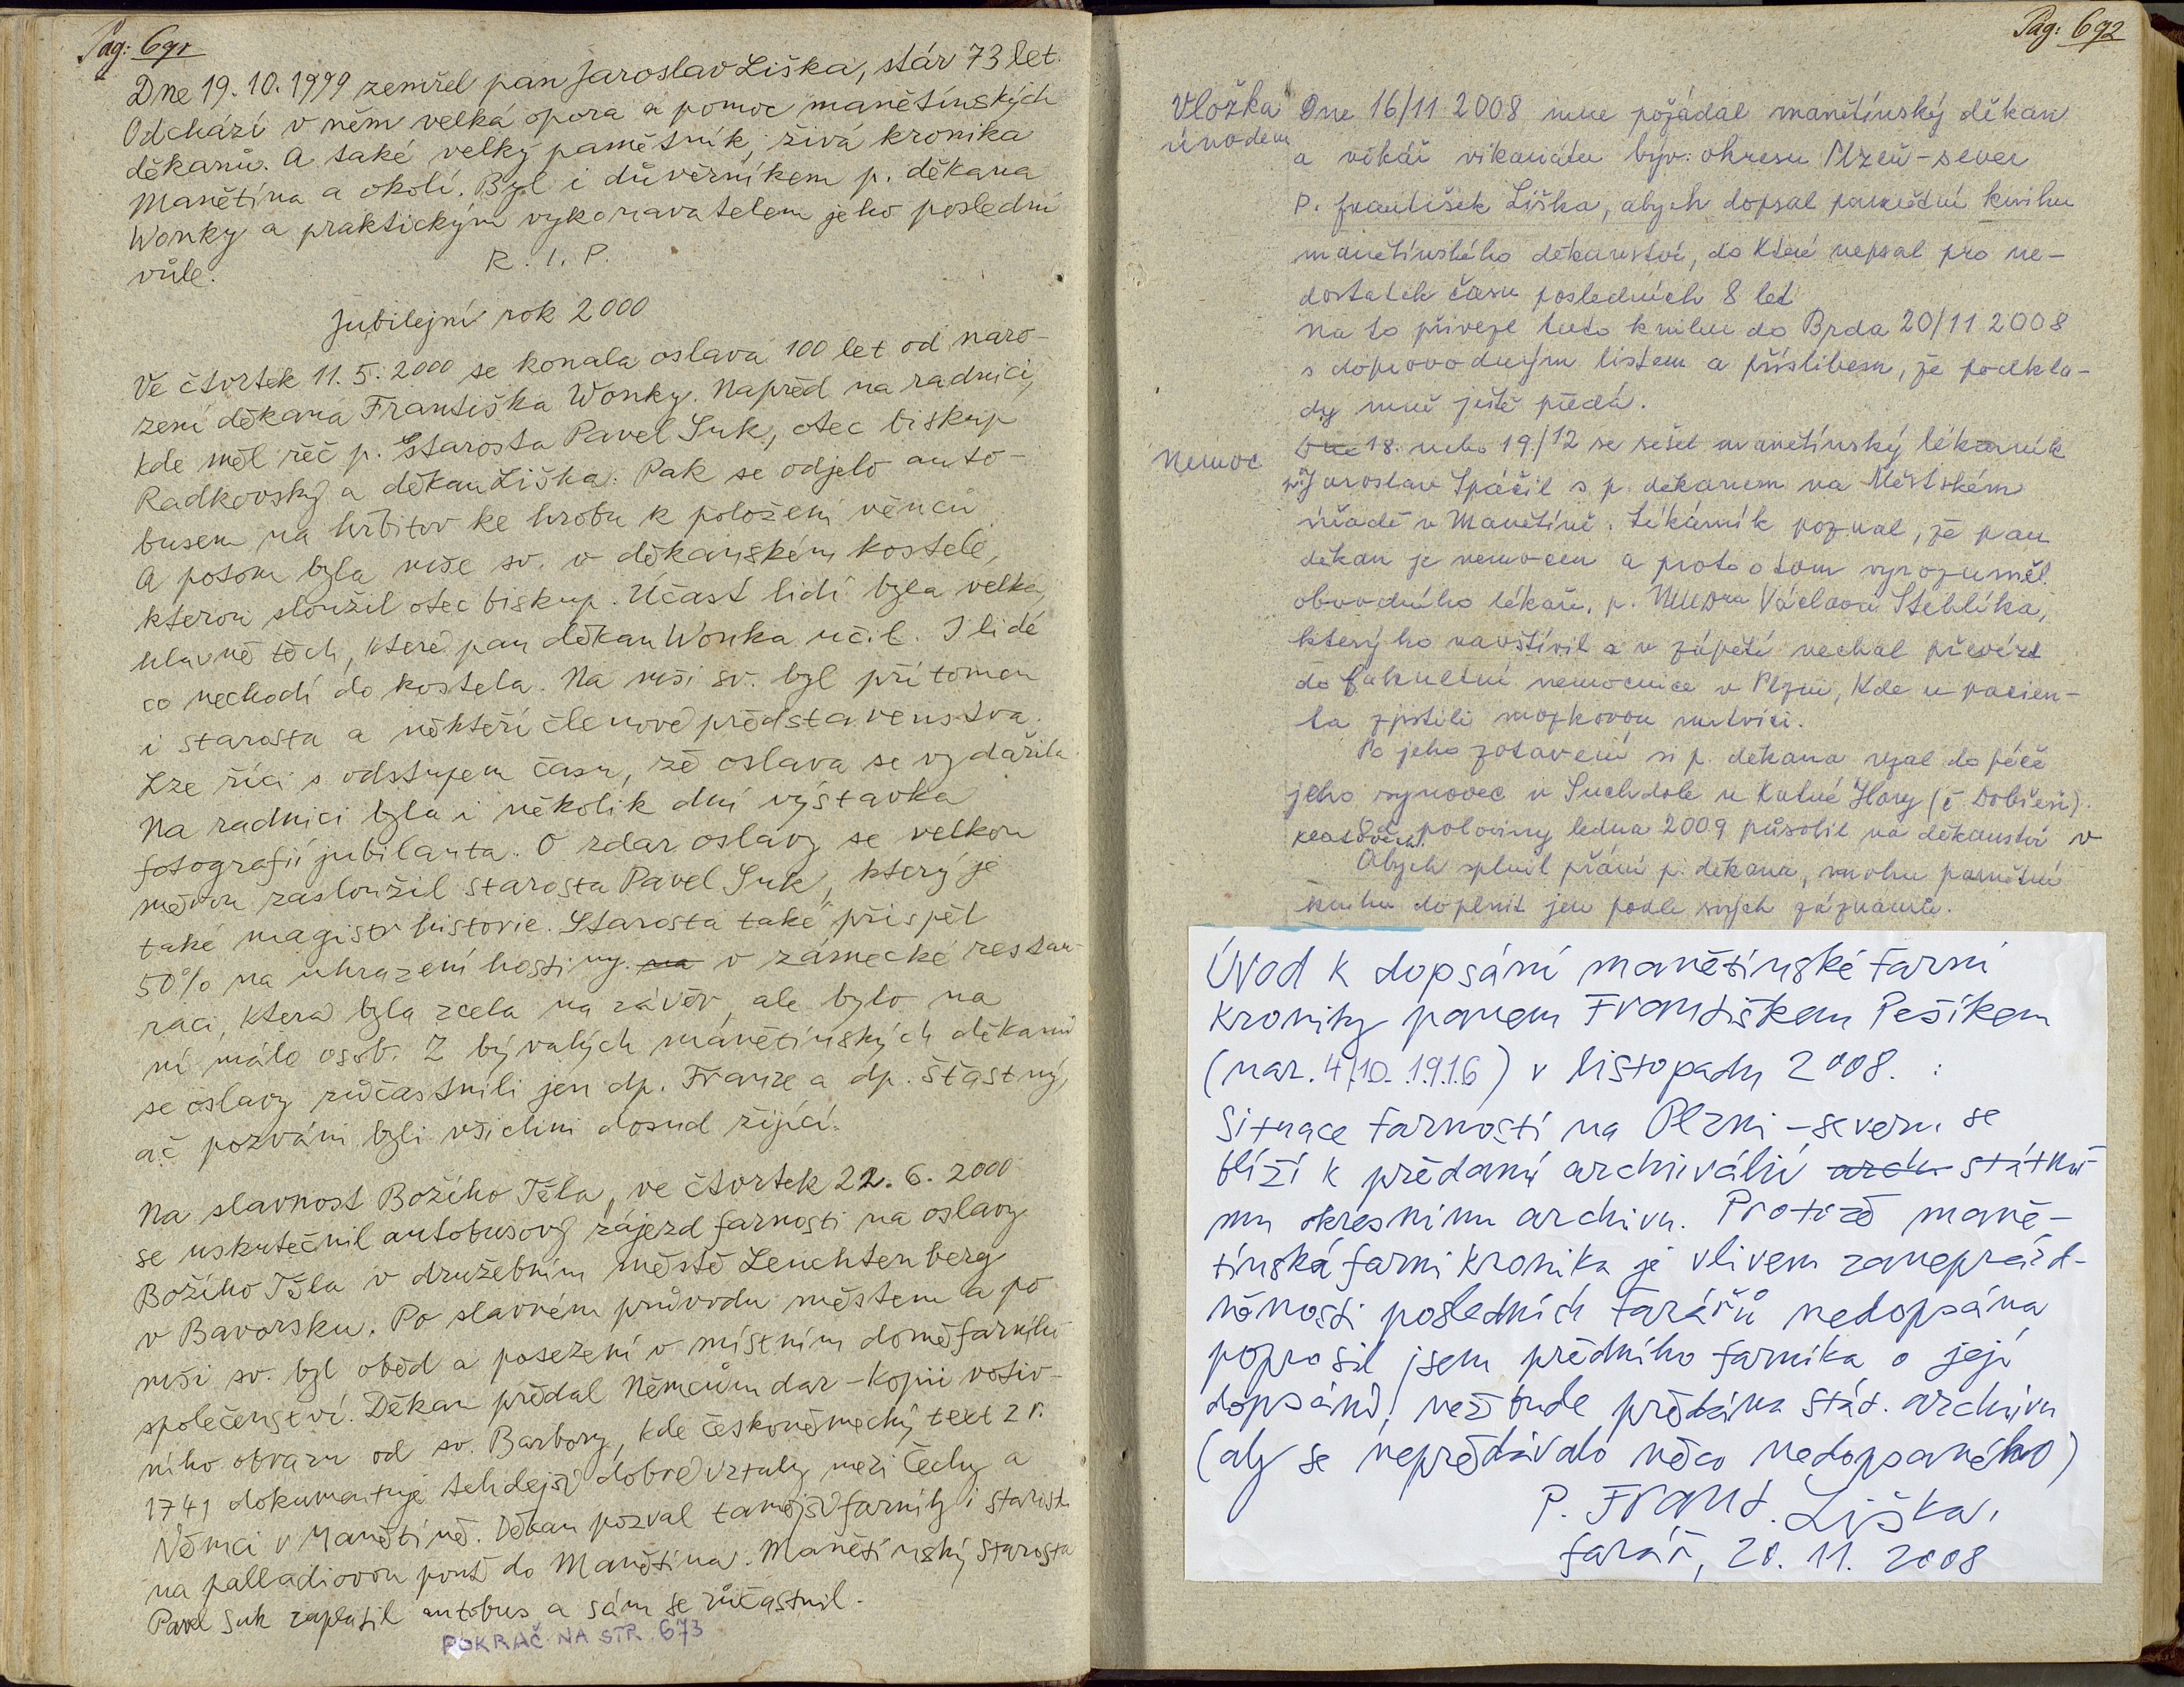 Pag: 691
Dne 19. 10. 1999 zemřel pan Jaroslav Liška, stár 73 let.
Odchází v něm velká opora a pomoc manětínských
děkanů. A také velký pamětník, živá kronika
Manětína a okolí. Byl i důvěrníkem p. děkana
Wonky a praktickým vykonavatelem jeho poslední
vůle.
R. I. P.
Jubilejní rok 2000
Ve čtvrtek 11. 5. 2000 se konala oslava 100 let od naro-
zení děkana Františka Wonky. Napřed na radnici,
kde měl řeč p. Starosta Pavel Suk, otec biskup
Radkovský a děkan Liška. Pak se odjelo auto-
busem na hřbitov ke hrobu k položení věnců
A potom byla mše sv. v děkanském kostele,
kterou sloužil otec biskup. Účast lidí byla velká,
hlavně těch, které pan děkan Wonka učil. I lidé
co nechodí do kostela. Na mši sv. byl přítomen
i starosta a někteří členové představenstva.
Lze říci s odstupem času, že oslava se vydařila
Na radnici byla i několik dní výstavka
fotografií jubilanta. O zdar oslavy se velkou
měrou zasloužil starosta Pavel Suk, který je
také magistr historie. Starosta také přispěl
50% na uhrazení hostiny. na v zámecké restau-
raci, která byla zcela na závěr, ale bylo na
ní málo osob. Z bývalých manětínských děkanů
se oslavy zúčastnili jen dp. Franze a dp. Šťastný,
ač pozváni byli všichni dosud žijící.
Na slavnost Božího Těla, ve čtvrtek 22. 6. 2000
se uskutečnil autobusový zájezd farnosti na oslavy
Božího Těla v družebním městě Leuchtenberg
v Bavorsku. Po slavném průvodu městem a po
mši sv. byl oběd a posezení v místním domě farního
společenství. Děkan předal Němcům dar – kopii votiv-
ního obrazu od sv. Barbory, kde českoněmecký text z r.
1741 dokumentuje tehdejší dobré vztahy mezi Čechy a
Němci v Manětíně. Děkan pozval tamější farníky i starostu
na palladiovou pouť do Manětína. Manětínský starosta
Pavel Suk zaplatil autobus a sám se zúčastnil.
POKRAČ. NA STR. 673
Pag: 692
Vložka Dne 16/11 2008 mne požádal manětínský děkan
úvodem a vikář vikariátu býv: okresu Plzeň-sever
P. František Liška, abych dopsal pamětní knihu
manětínského děkanství, do které nepsal pro ne-
dostatek času posledních 8 let
Na to přivezl tuto knihu do Brda 20/11 2008
s doprovodným listem a příslibem, že podkla-
dy mně ještě předá.
Nemoc Dne 18. nebo 19./12 se sešel manětínský lékárník
Jaroslav Spáčil s p. děkanem na Městském
úřadě v Manětíně. Lékárník poznal, že pan
děkan je nemocen a proto o tom vyrozuměl
obvodního lékaře, p. MUDra Václava Steblíka,
který ho navštívil a v zápětí nechal převézt
do fakultní nemocnice v Plzni, kde u pacien-
ta zjistili mozkovou mrtvici.
Po jeho zotavení si p. děkana vzal do péče
jeho synovec v Suchdole u Kutné Hory (č. Dobřeň).
Od poloviny ledna 2009 působil na děkanství v
Klatovech.
Abych splnil přání p. děkana, mohu pamětní
knihu doplnit jen podle svých záznamů.
Úvod k dopsání manětínské farní
kroniky panem Františkem Pešíkem
(nar. 4/10. 1916) v listopadu 2008. :
Situace farností na Plzni-severu se
blíží k předání archiválií arch. státní-
mu okresnímu archivu. Protože mane-
tínská farní kronika je vlivem zaneprázd-
něnosti posledních farářů nedopsána
poprosil jsem předního farníka o její
dopsání, než bude předána stát. archivu
(aby se nepředávalo něco nedopsaného)
P. Frant. Liška,
farář, 20. 11. 2008